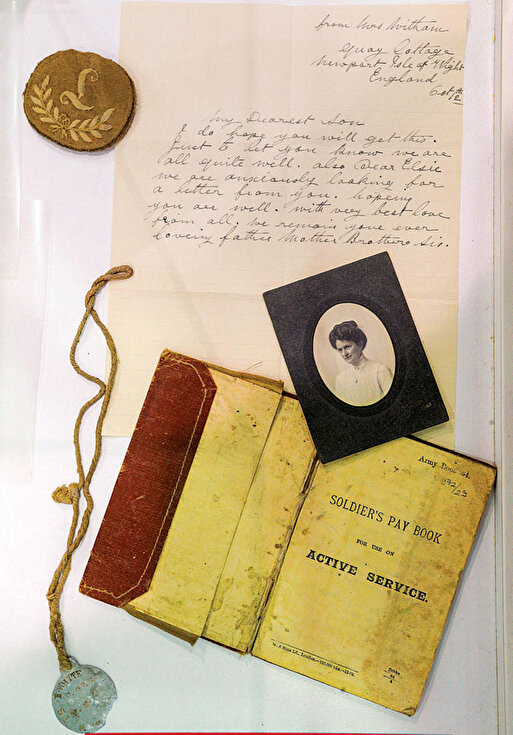 from Mrs Witham
Quay Cottage
Newport Isle of Wight
England
L
My Dearest Son
I do hope you will get this.
Just to let you know we are
all quite well. also Dear Elsie
we are anxiously looking for
a letter from you. hoping
you are well. with very best love
from all. we remain your ever
loving father Mother Brothers Sis.
Army Book 64.
SOLDIER'S PAY BOOK
FOR USE ON
ACTIVE SERVICE.